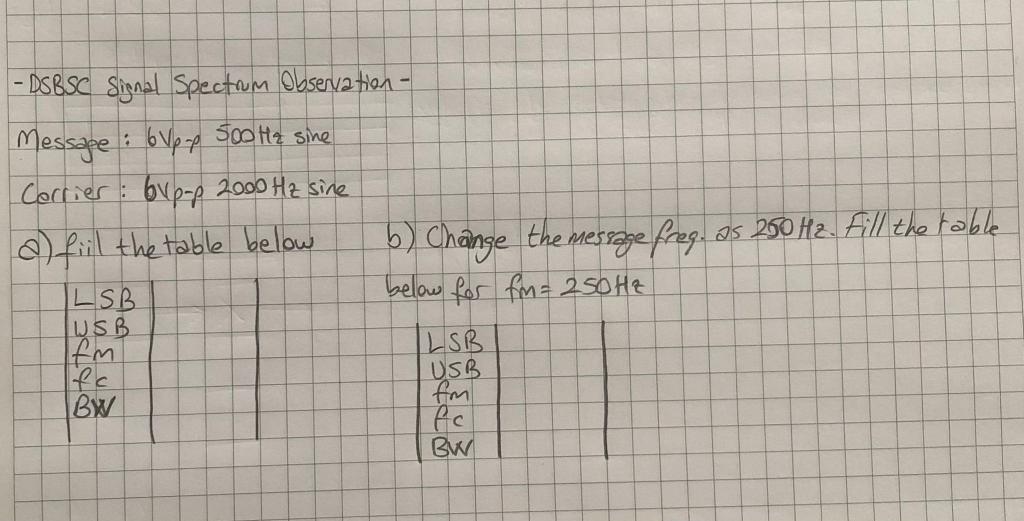 - DSBSC Signal Spectrum Observation -
Message : 6Vp-p 500Hz sine
Carrier : 6Vp-p 2000Hz sine
a) fiil the table below
LSB
USB
fm
fc
BW
b) Change the message freq. as 250Hz. Fill the table
below for fm = 250Hz
LSB
USB
fm
fc
BW